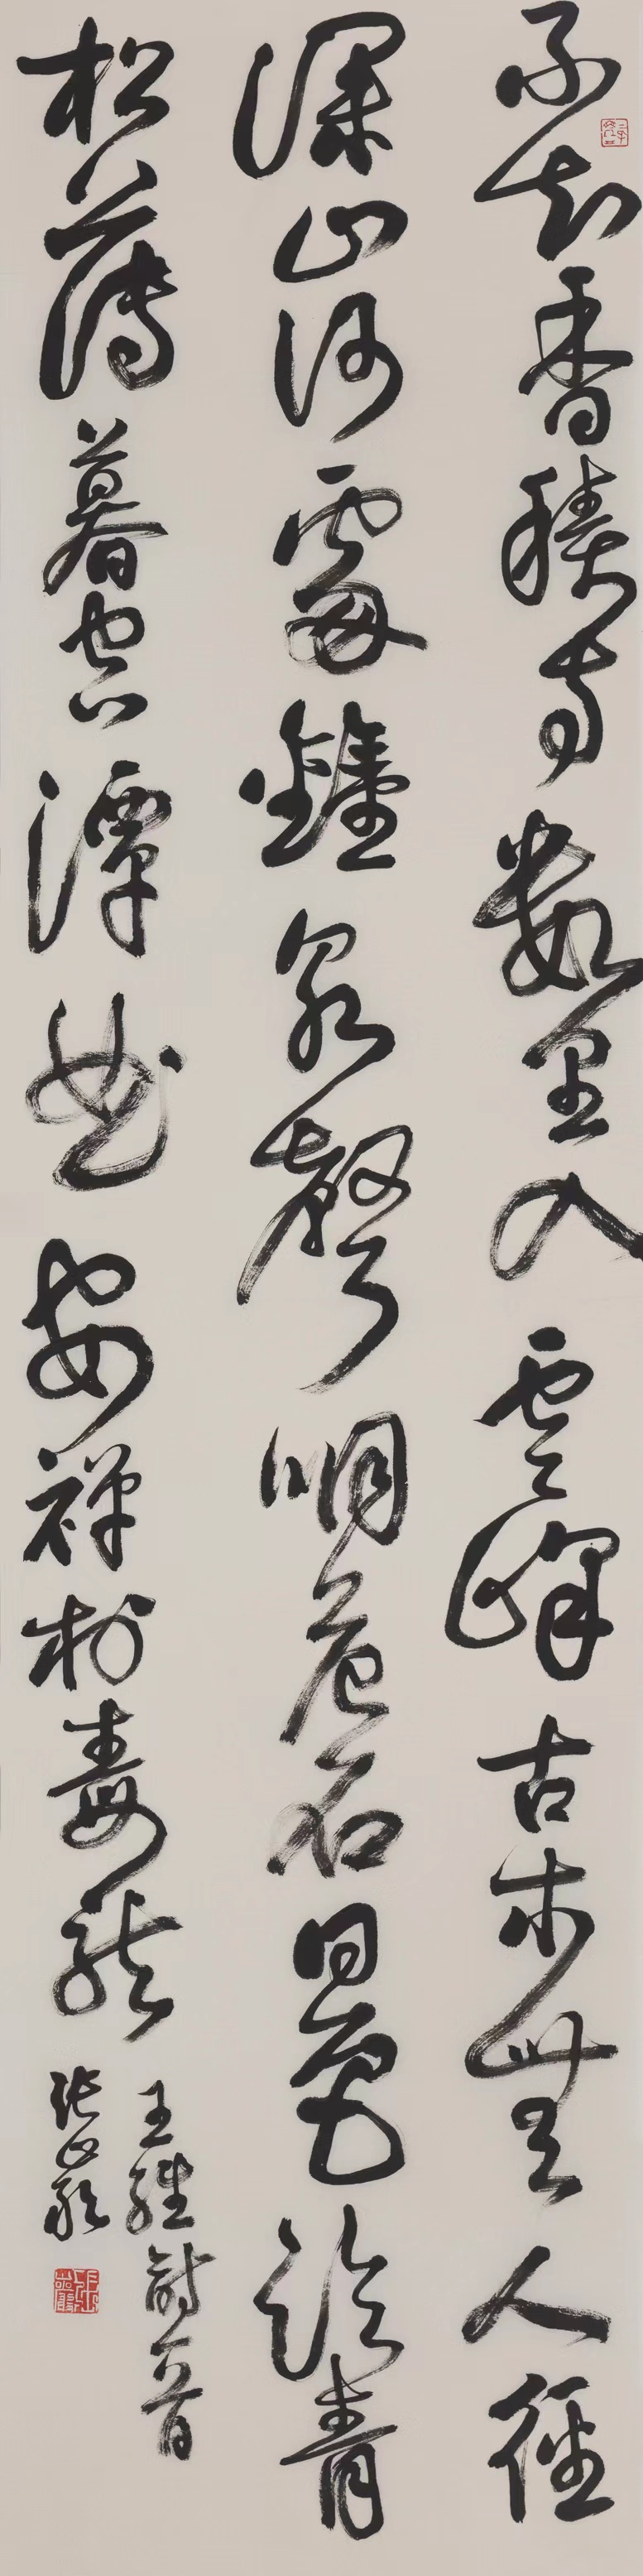 不知香積寺數里入雲峰古木無人徑
深山何處鐘泉聲咽危石日色冷青
松薄暮空潭曲安禪制毒龍
王維詩一首
張巖